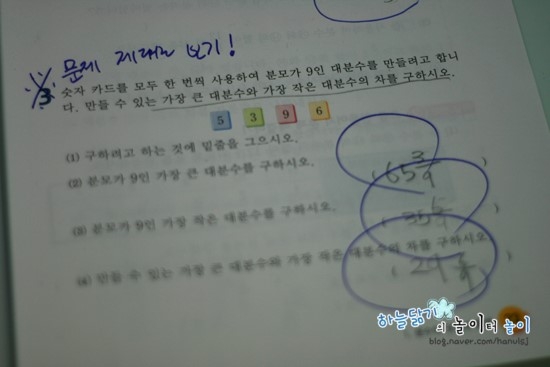 문제 제대로 보기!
3. 숫자 카드를 모두 한 번씩 사용하여 분모가 9인 대분수를 만들려고 합니
다. 만들 수 있는 가장 큰 대분수와 가장 작은 대분수의 차를 구하시오.
5 3 9 6
(1) 구하려고 하는 것에 밑줄을 그으시오.
(2) 분모가 9인 가장 큰 대분수를 구하시오.
( 65 3/9 )
(3) 분모가 9인 가장 작은 대분수를 구하시오.
(4) 만들 수 있는 가장 큰 대분수와 가장 작은 대분수와 차를 구하시오.
하늘닮기의 놀이터 놀이
blog.naver.com/hanulsj